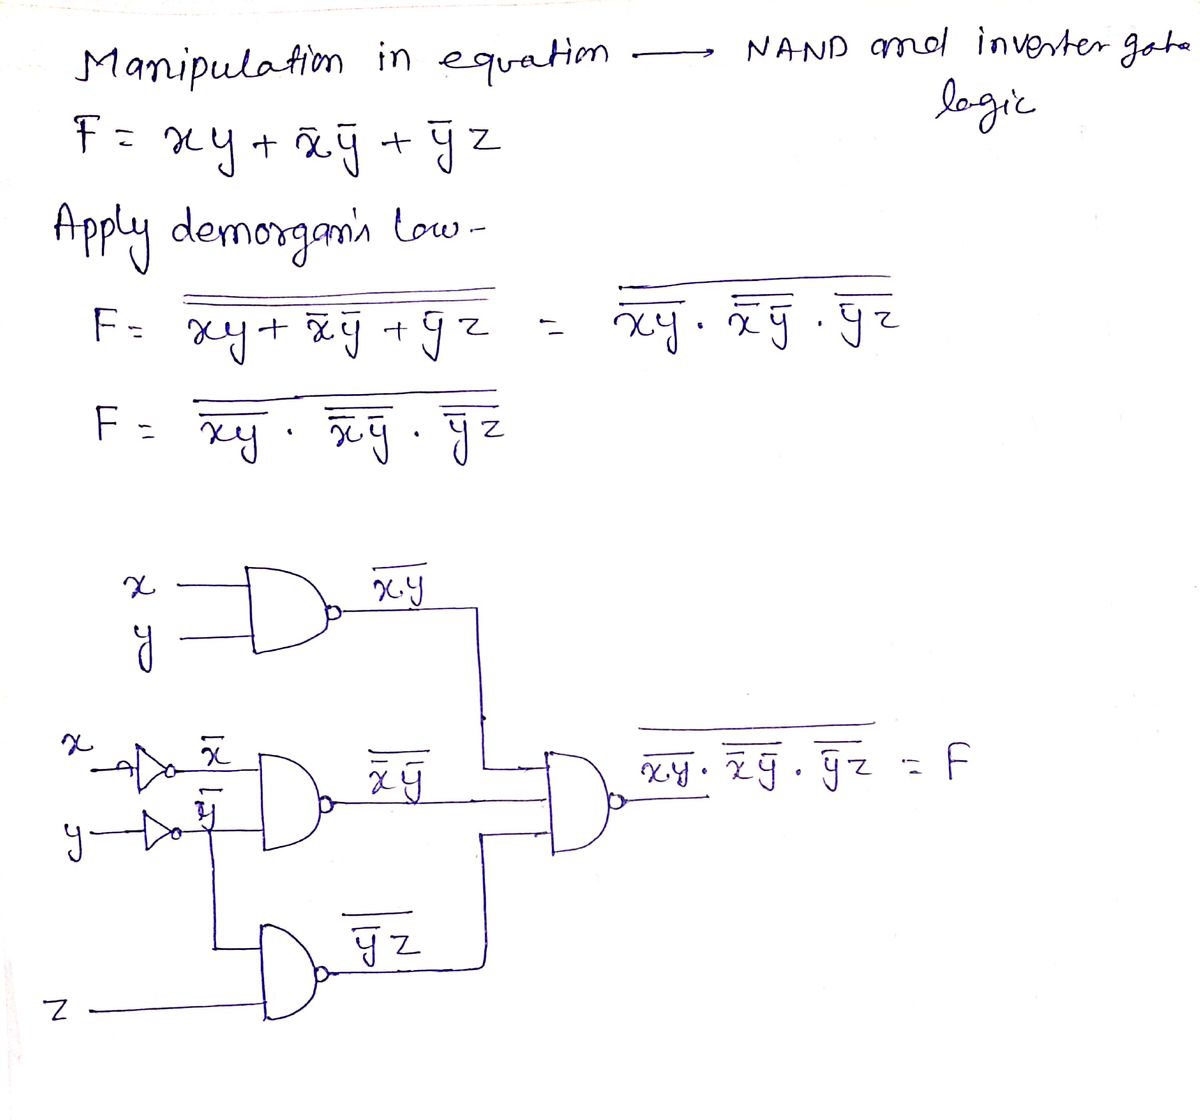 Manipulation in equation → NAND and inverter gate
logic
F = xy + x̄ȳ + ȳz
Apply demorgan's law -
F = \overline{\overline{xy + x̄ȳ + ȳz}} = \overline{\overline{xy} · \overline{x̄ȳ} · \overline{ȳz}}
F = \overline{\overline{xy} · \overline{x̄ȳ} · \overline{ȳz}}
x
\overline{x.y}
y
x
x̄
\overline{x̄ȳ}
\overline{\overline{x.y} · \overline{x̄ȳ} · \overline{ȳz}} = F
y
ȳ
\overline{ȳz}
z